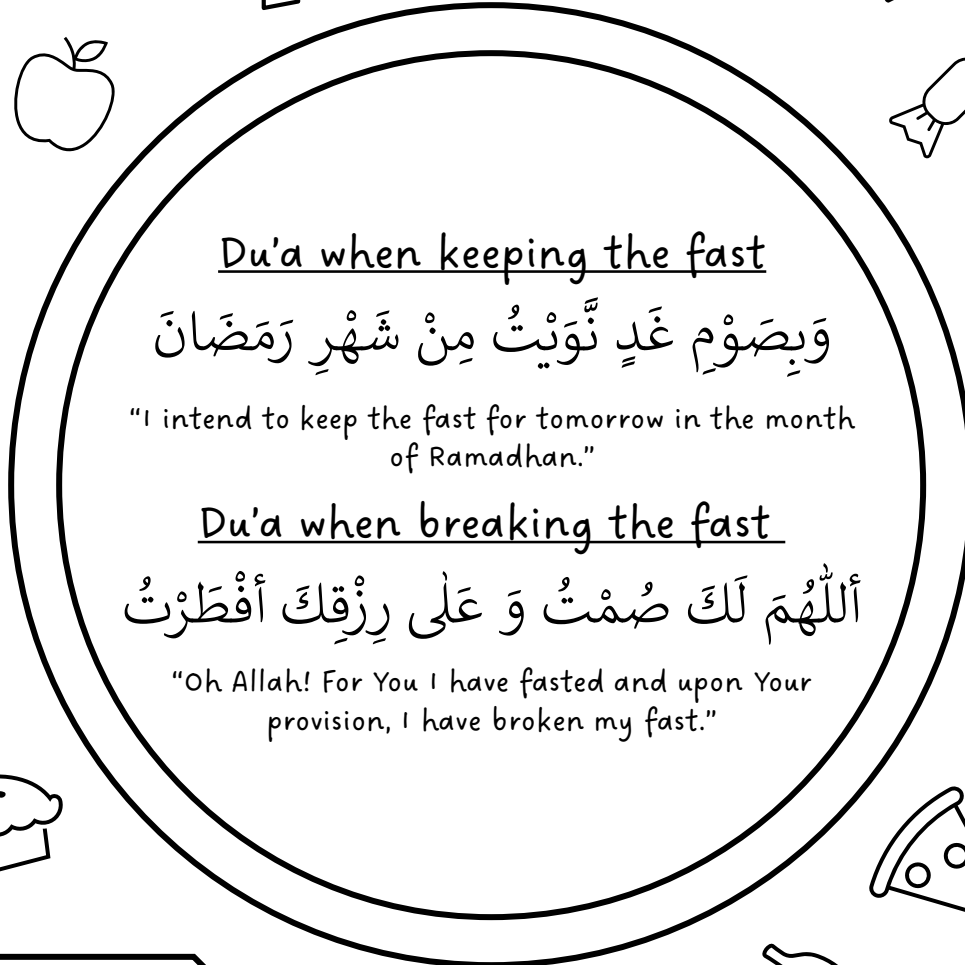 Du'a when keeping the fast
وَبِصَوْمِ غَدٍ نَّوَيْتُ مِنْ شَهْرِ رَمَضَانَ
“I intend to keep the fast for tomorrow in the month
of Ramadhan.”
Du'a when breaking the fast
أللّٰهُمَ لَكَ صُمْتُ وَ عَلٰى رِزْقِكَ أفْطَرْتُ
“Oh Allah! For You I have fasted and upon Your
provision, I have broken my fast.”